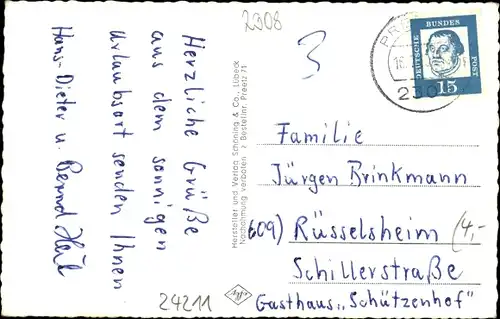 2308
3
Herzliche Grüße
aus dem sonnigen
Urlaubsort senden Ihnen
Hans-Dieter u. Bernd
Hersteller und Verlag Schöning & Co., Lübeck
Nachahmung verboten Bestellnr. Preetz 71
PRE
16.
230
DEUTSCHE BUNDESPOST
15
Familie
Jürgen Brinkmann
609) Rüsselsheim
Schillerstraße
Gasthaus „Schützenhof"
4,-
24211